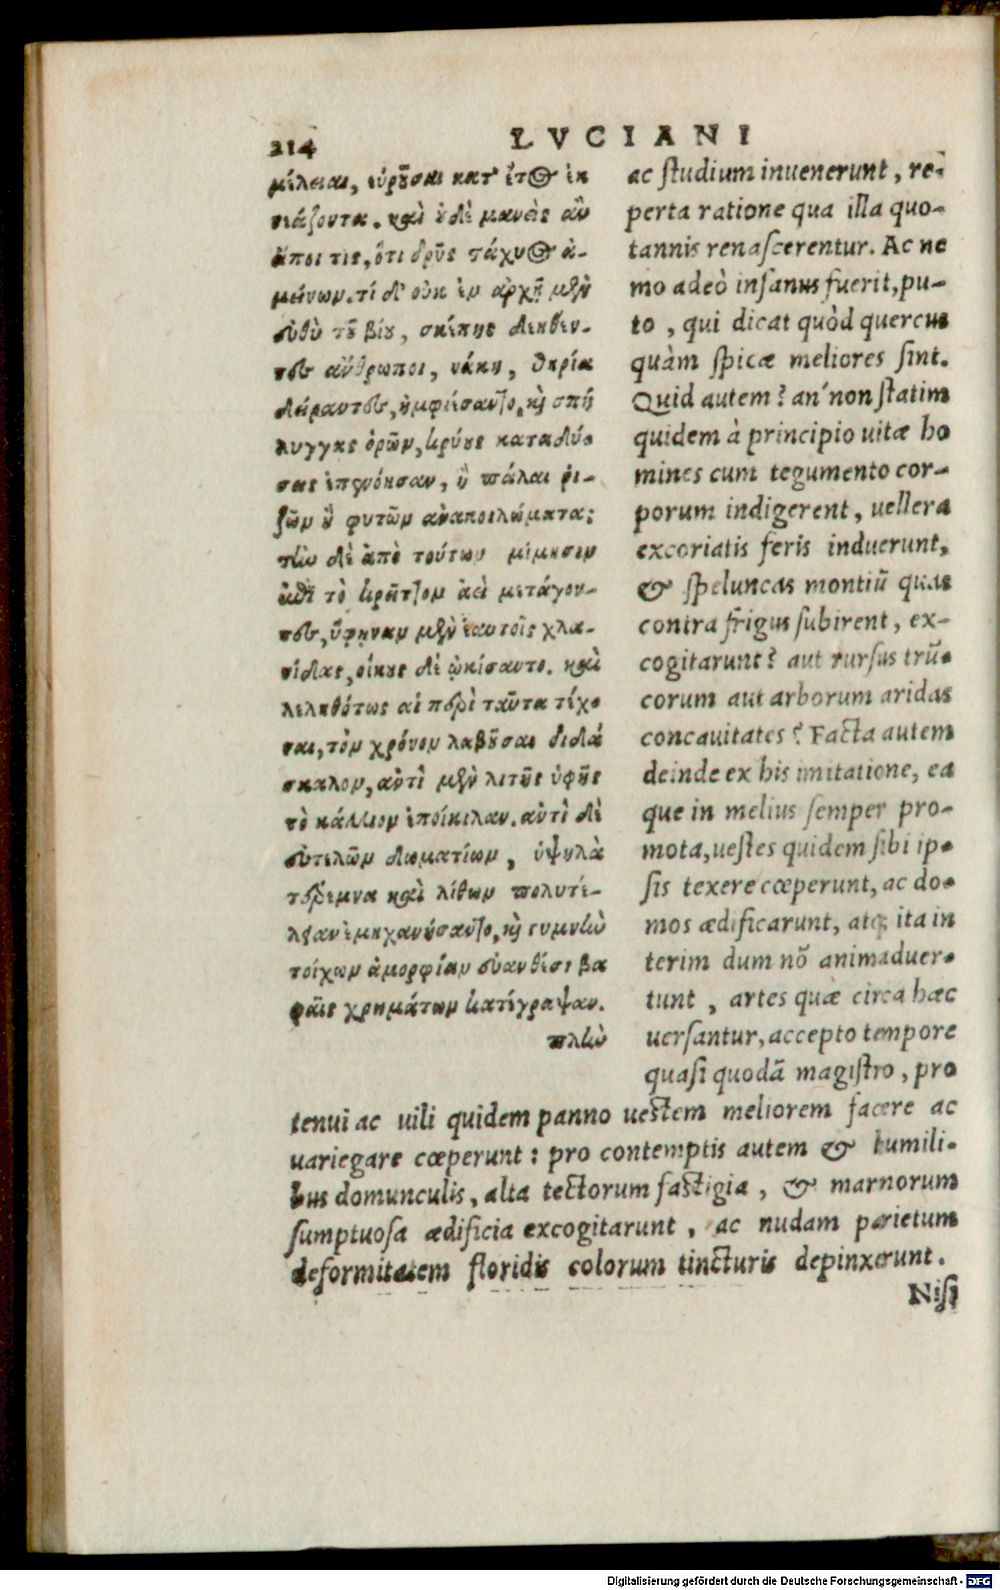 214 LVCIANI
μέλειαι, εὑροῦσαι κατ' ἔτος ἐκ
πιάζοντα. καὶ οὐδὲ μανεὶς ἂν
εἴποι τις, ὅτι δρῦς στάχυος ἀ-
μείνων. τί δ' οὐκ ἐν ἀρχῇ μὲν
εὐθὺ τοῦ βίου, σκέπης δεηθέν-
τες ἄνθρωποι, νάκη, θηρία
δείραντες, ἠμφιέσαντο, καὶ σπή
λυγγας ὀρῶν, κρύους καταδύσ
σεις ἐπενόησαν, ἢ πάλαι ῥι-
ζῶν ἢ φυτῶν ἀναποιλώματα;
τὴν δὲ ἀπὸ τούτων μίμησιν
ἐπὶ τὸ κρεῖττον ἀεὶ μετάγον-
τες, ὕφηναν μὲν ἑαυτοῖς χλα-
νίδας, οἴκους δὲ ᾠκίσαντο. καὶ
λεληθότως αἱ περὶ ταῦτα τέχν
ναι, τὸν χρόνον λαβοῦσαι διδά
σκαλον, ἀντὶ μὲν λιτῆς ὑφῆς
τὸ κάλλιον ἐποίκιλαν. ἀντὶ δὲ
εὐτελῶν δωματίων, ὑψηλὰ
τέρεμνα καὶ λίθων πολυτέ-
λειαν ἐμηχανήσαντο, καὶ γυμνὴν
τοίχων ἀμορφίαν εὐανθέσι βα
φαῖς χρημάτων κατέγραψαν.
πλὴν
ac studium inuenerunt, re-
perta ratione qua illa quo-
tannis renascerentur. Ac ne
mo adeò insanus fuerit, pu-
to, qui dicat quòd quercus
quàm spicæ meliores sint.
Quid autem? an' non statim
quidem à principio uitæ ho
mines cum tegumento cor-
porum indigerent, uellera
excoriatis feris induerunt,
& speluncas montiū quas
contra frigus subirent, ex-
cogitarunt? aut rursus trū-
corum aut arborum aridas
concauitates? Facta autem
deinde ex his imitatione, ea
que in melius semper pro-
mota, uestes quidem sibi ip-
sis texere cœperunt, ac do-
mos ædificarunt, atq; ita in
terim dum nō animaduer-
tunt, artes quæ circa hæc
uersantur, accepto tempore
quasi quodā magistro, pro
tenui ac uili quidem panno uestem meliorem facere ac
uariegare cœperunt: pro contemptis autem & humili-
bus domunculis, alta tectorum fastigia, & marnorum
sumptuosa ædificia excogitarunt, ac nudam parietum
deformitatem floridis colorum tincturis depinxerunt.
Nisi
Digitalisierung gefördert durch die Deutsche Forschungsgemeinschaft - DFG